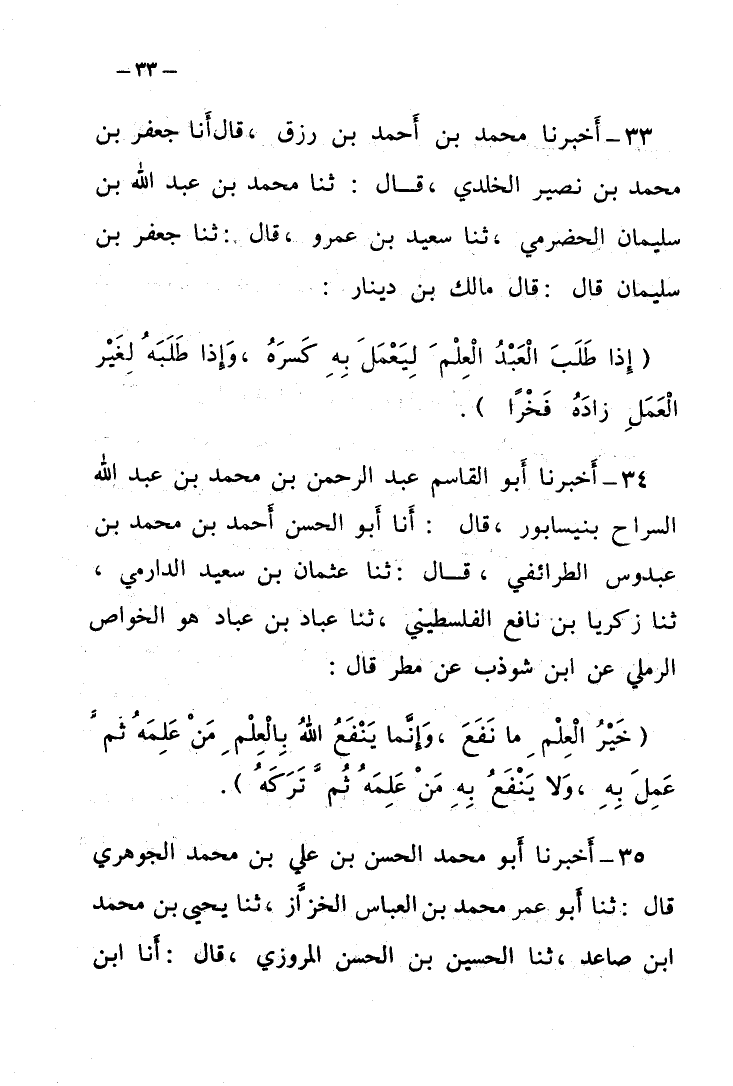 – ٣٣ –
٣٣ – أَخبرنا محمد بن أَحمد بن رزق ، قال أَنا جعفر بن
محمد بن نصير الخلدي ، قــال : ثنا محمد بن عبد الله بن
سليمان الحضرمي ، ثنا سعيد بن عمرو ، قال : ثنا جعفر بن
سليمان قال : قال مالك بن دينار :
( إِذا طَلَبَ الْعَبْدُ الْعِلْمَ لِيَعْمَلَ بِهِ كَسرَهُ ، وَإِذا طَلَبَهُ لِغَيْرِ
الْعَمَلِ زادَهُ فَخْرًا ) .
٣٤ – أَخبرنا أَبو القاسم عبد الرحمن بن محمد بن عبد الله
السراح بنيسابور ، قال : أَنا أَبو الحسن أَحمد بن محمد بن
عبدوس الطرائفي ، قــال : ثنا عثمان بن سعيد الدارمي ،
ثنا زكريا بن نافع الفلسطيني ، ثنا عباد بن عباد هو الخواص
الرملي عن ابن شوذب عن مطر قال :
( خَيْرُ الْعِلْمِ ما نَفَعَ ، وَإِنَّما يَنْفَعُ اللهُ بِالْعِلْمِ مَنْ عَلِمَهُ ثُم َّ
عَمِلَ بِهِ ، وَلا يَنْفَعُ بِهِ مَنْ عَلِمَهُ ثُم َّ تَرَكَهُ ) .
٣٥ – أَخبرنا أَبو محمد الحسن بن علي بن محمد الجوهري
قال : ثنا أَبو عمر محمد بن العباس الخزَّاز ، ثنا يحيى بن محمد
ابن صاعد ، ثنا الحسين بن الحسن المروزي ، قال : أَنا ابن